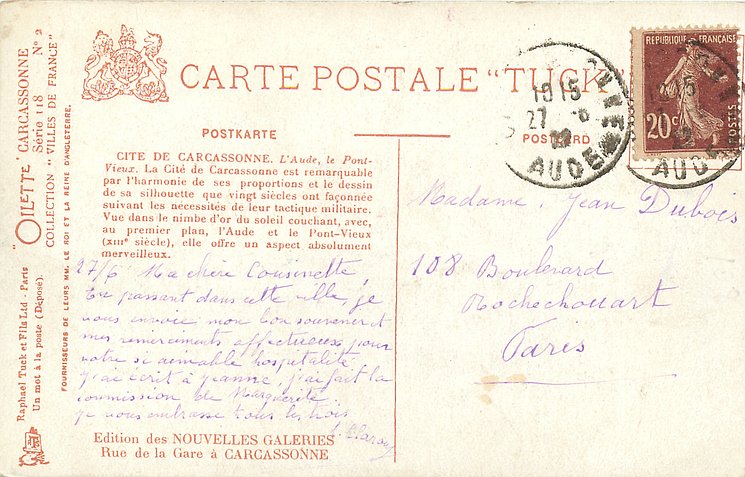 "OILETTE" CARCASSONNE
Série 118 Nº 2
COLLECTION "VILLES DE FRANCE"
FOURNISSEURS DE LEURS MM. LE ROI ET LA REINE D'ANGLETERRE.
Raphael Tuck et Fils Ltd - Paris
Un mot à la poste (Déposé).
CARTE POSTALE "TUCK"
POSTKARTE
POSTCARD
CITE DE CARCASSONNE. L'Aude, le Pont-
Vieux. La Cité de Carcassonne est remarquable
par l'harmonie de ses proportions et le dessin
de sa silhouette que vingt siècles ont façonnée
suivant les nécessités de leur tactique militaire.
Vue dans le nimbe d'or du soleil couchant, avec,
au premier plan, l'Aude et le Pont-Vieux
(XIIIe siècle), elle offre un aspect absolument
merveilleux.
27/6 Ma chère Cousinette,
En passant dans cette ville, je
vous envoie mon bon souvenir et
mes remerciments affectueux pour
votre si aimable hospitalité
J'ai écrit à Jeanne, j'ai fait la
commission de Marguerite
je vous embrasse tous les trois
Edition des NOUVELLES GALERIES
Rue de la Gare à CARCASSONNE
1015
27
AUDE
REPUBLIQUE FRANÇAISE
20c
POSTES
15
AUDE
Madame Jean Dubois
108 Boulevard
Rochechouart
Paris